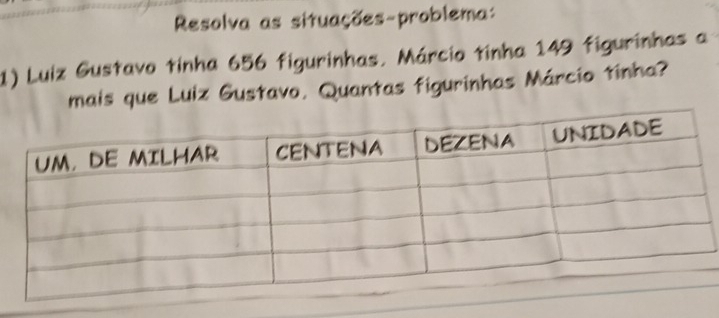 Resolva as situações-problema:
1) Luiz Gustavo tinha 656 figurinhas. Márcio tinha 149 figurinhas a
mais que Luiz Gustavo. Quantas figurinhas Márcio tinha?
UM. DE MILHAR CENTENA DEZENA UNIDADE